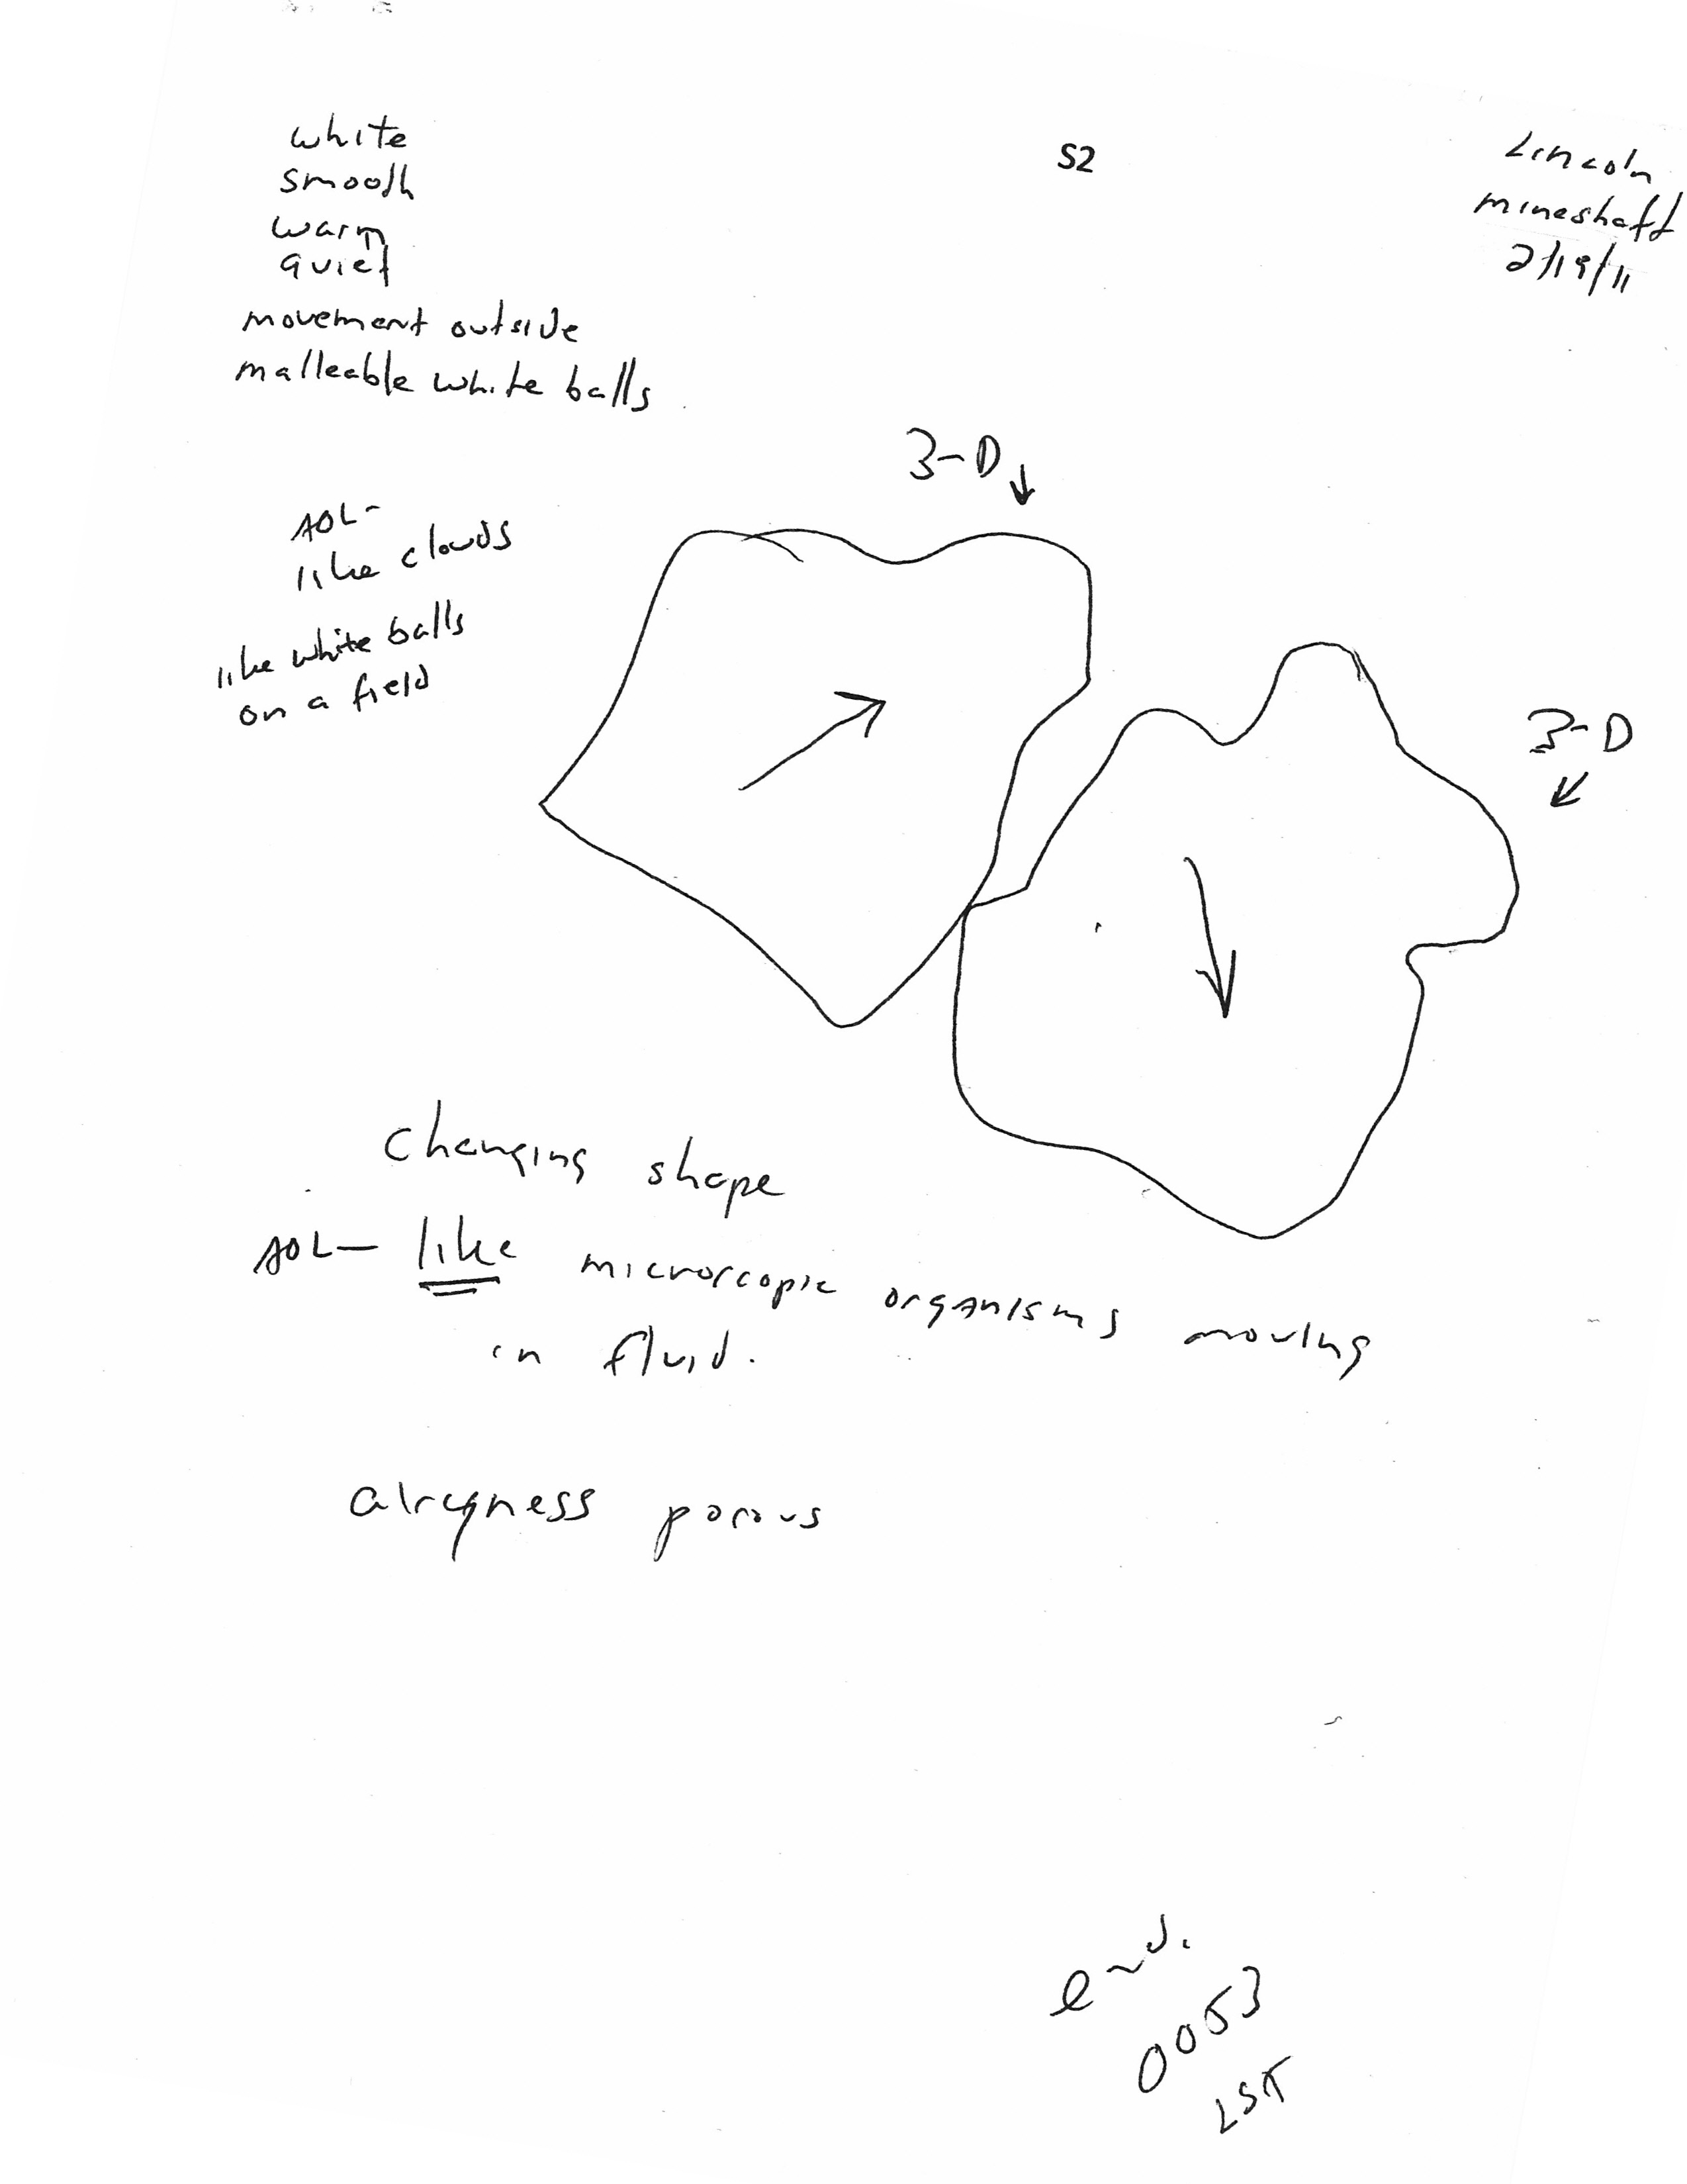 white
smooth
warm
quiet
movement outside
malleable white balls
S2
Lincoln
mineshaft
2/19/11
3-D
AOL-
like clouds
like white balls
on a field
3-D
changing shape
AOL- like microscopic organisms moving
in fluid.
aireyness porous
end.
0053
LST